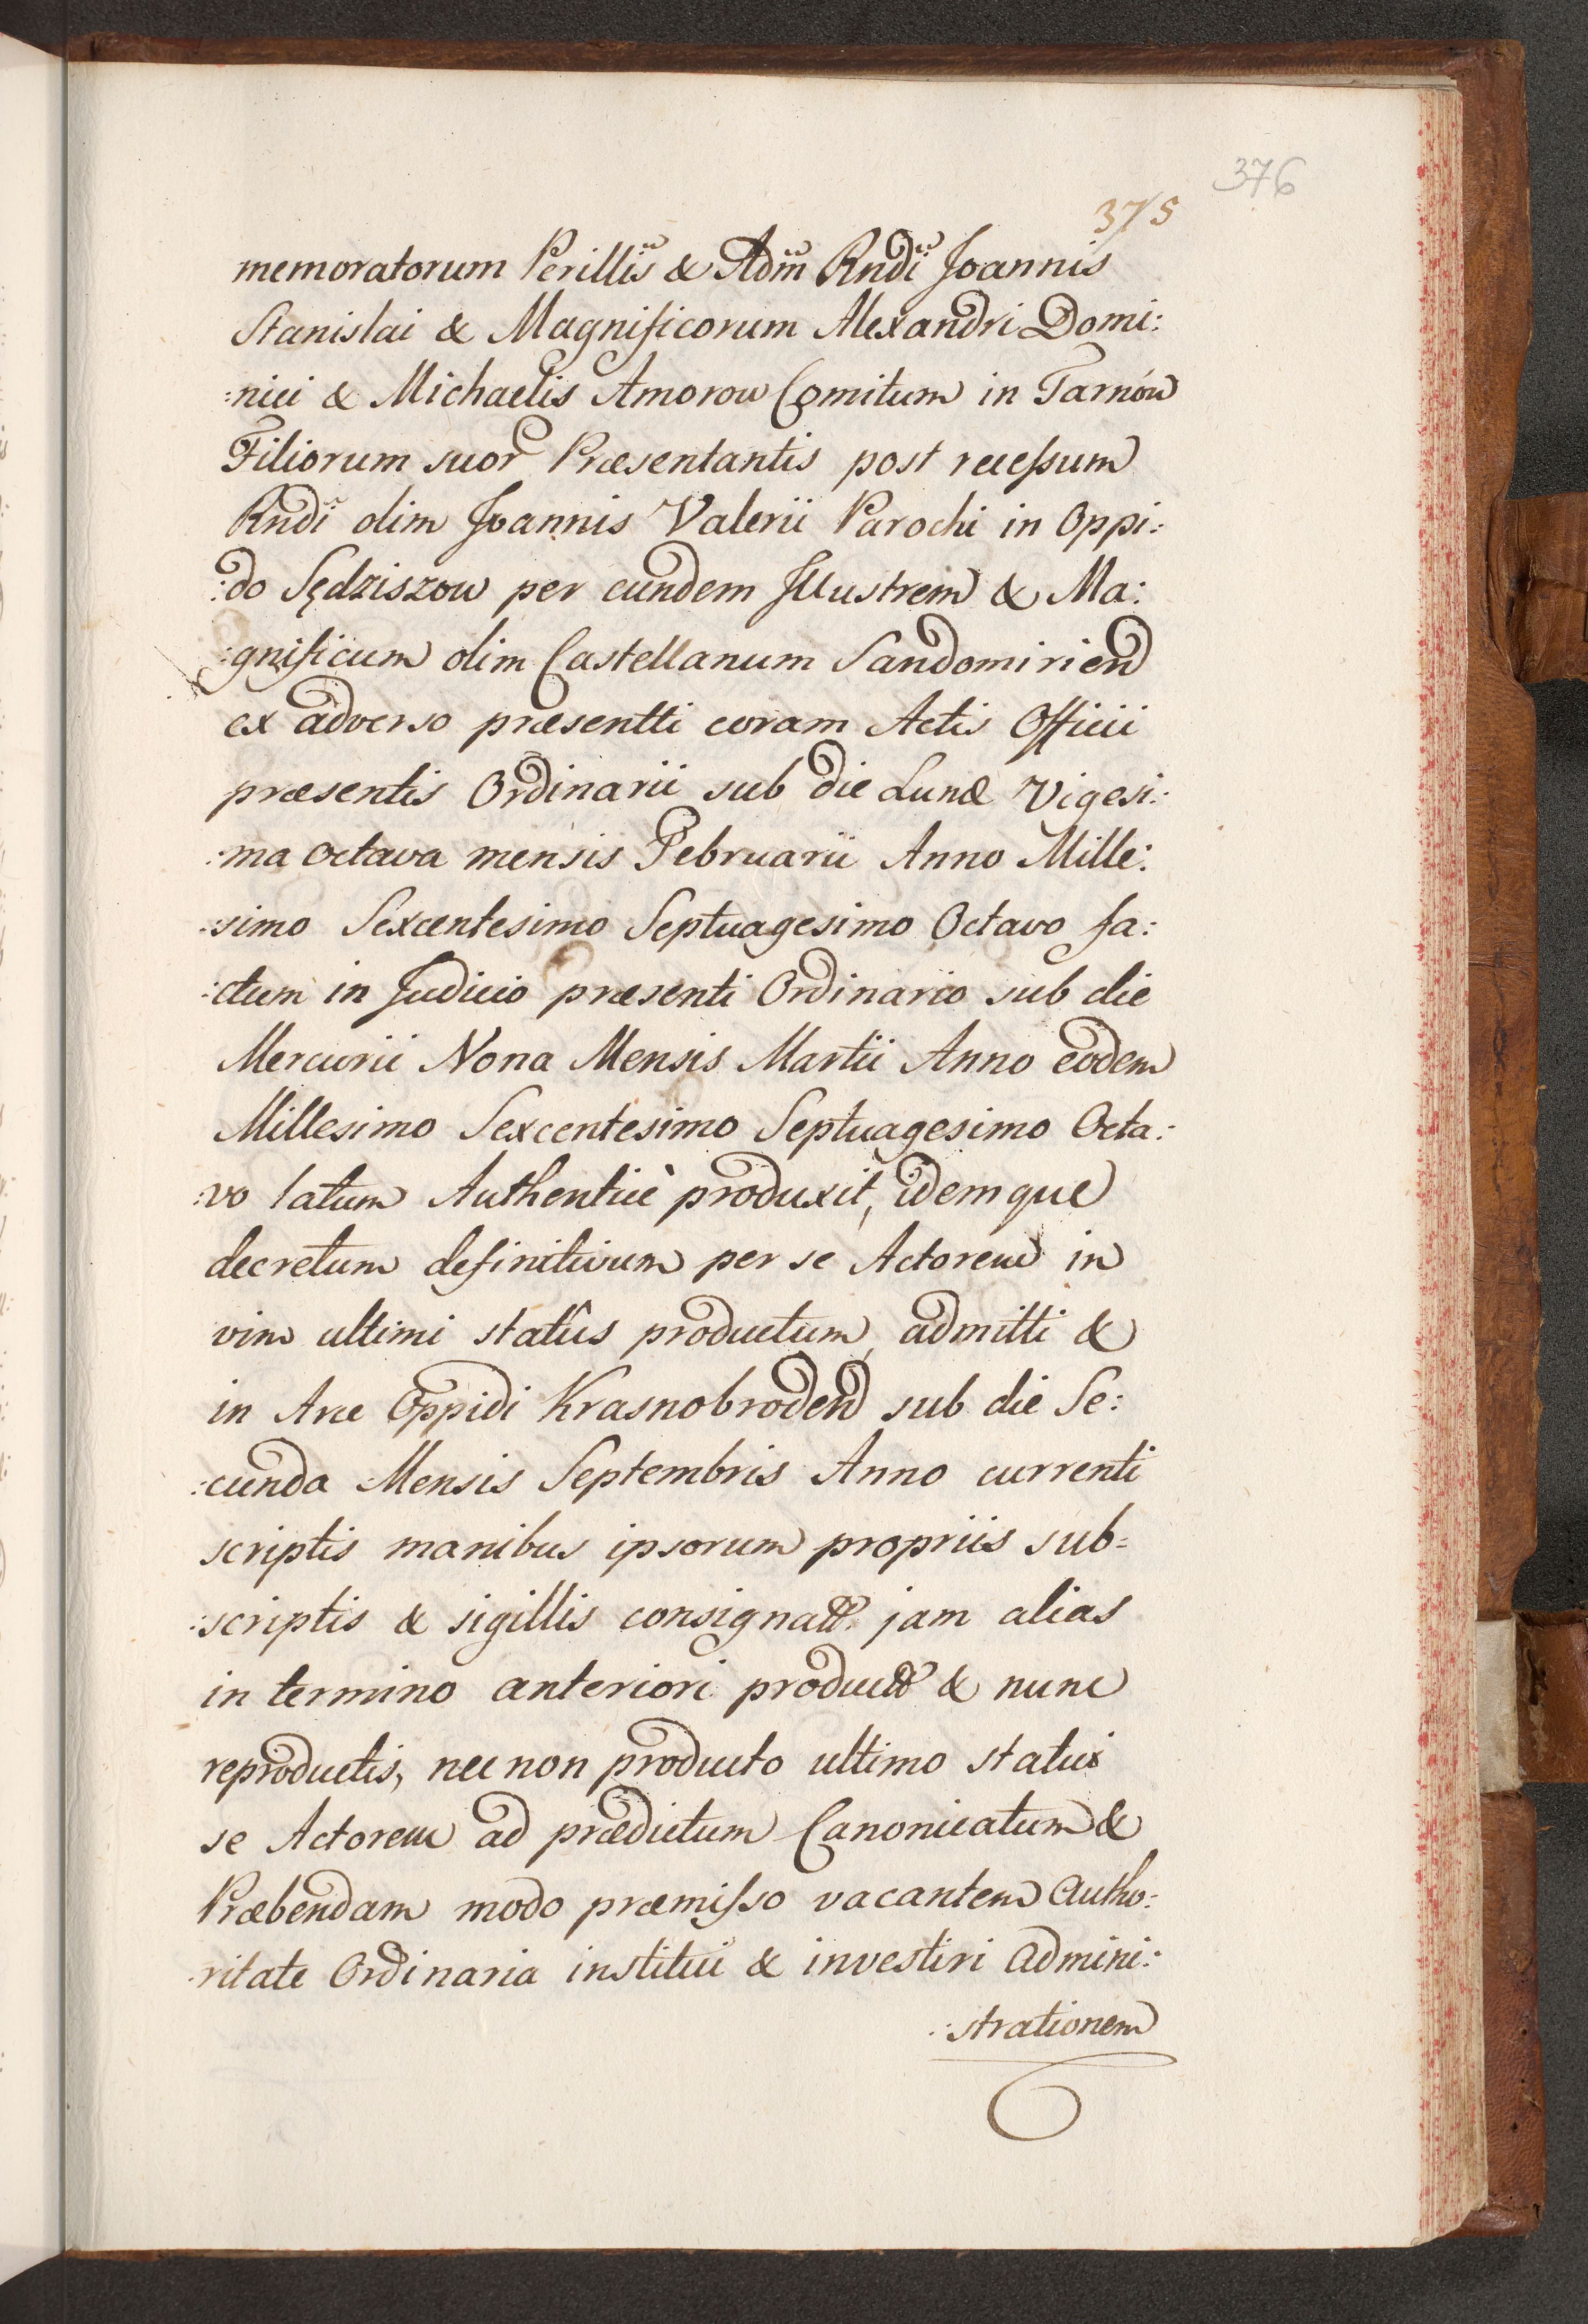 376
375
memoratorum Perillis & Adm Rndi Joannis
Stanislai & Magnificorum Alexandri Domi:
:nici & Michaelis Amorow Comitum in Tarnów
Filiorum suor Præsentantis post recessum
Rndi olim Joannis Valerii Parochi in Oppi:
:do Sędziszow per eundem Jllustrem & Ma:
:gnificum olim Castellanum Sandomiriend
ex adverso præsentti coram Actis Officii
præsentis Ordinarii sub die Lunæ Vigesi:
:ma octava mensis Februarii Anno Mille:
:simo Sexcentesimo Septuagesimo Octavo fa:
:ctum in Judicio præsenti Ordinario sub die
Mercurii Nona Mensis Martii Anno eodem
Millesimo Sexcentesimo Septuagesimo Octa:
:vo latum Authenticè produxit, idemque
decretum definitivum per se Actorem in
vim ultimi statûs productum, admitti &
in Arce Oppidi Krasnobrodend sub die Se:
:cunda Mensis Septembris Anno currenti
scriptis manibus ipsorum propriis sub=
:scriptis & sigillis consignatt. jam alias
in termino anteriori productt & nunc
reproductis, nec non producto ultimo statui
se Actorem ad prædictum Canonicatum &
Præbendam modo præmisso vacantem Autho:
:ritate Ordinaria institui & investiri admini:
:strationem